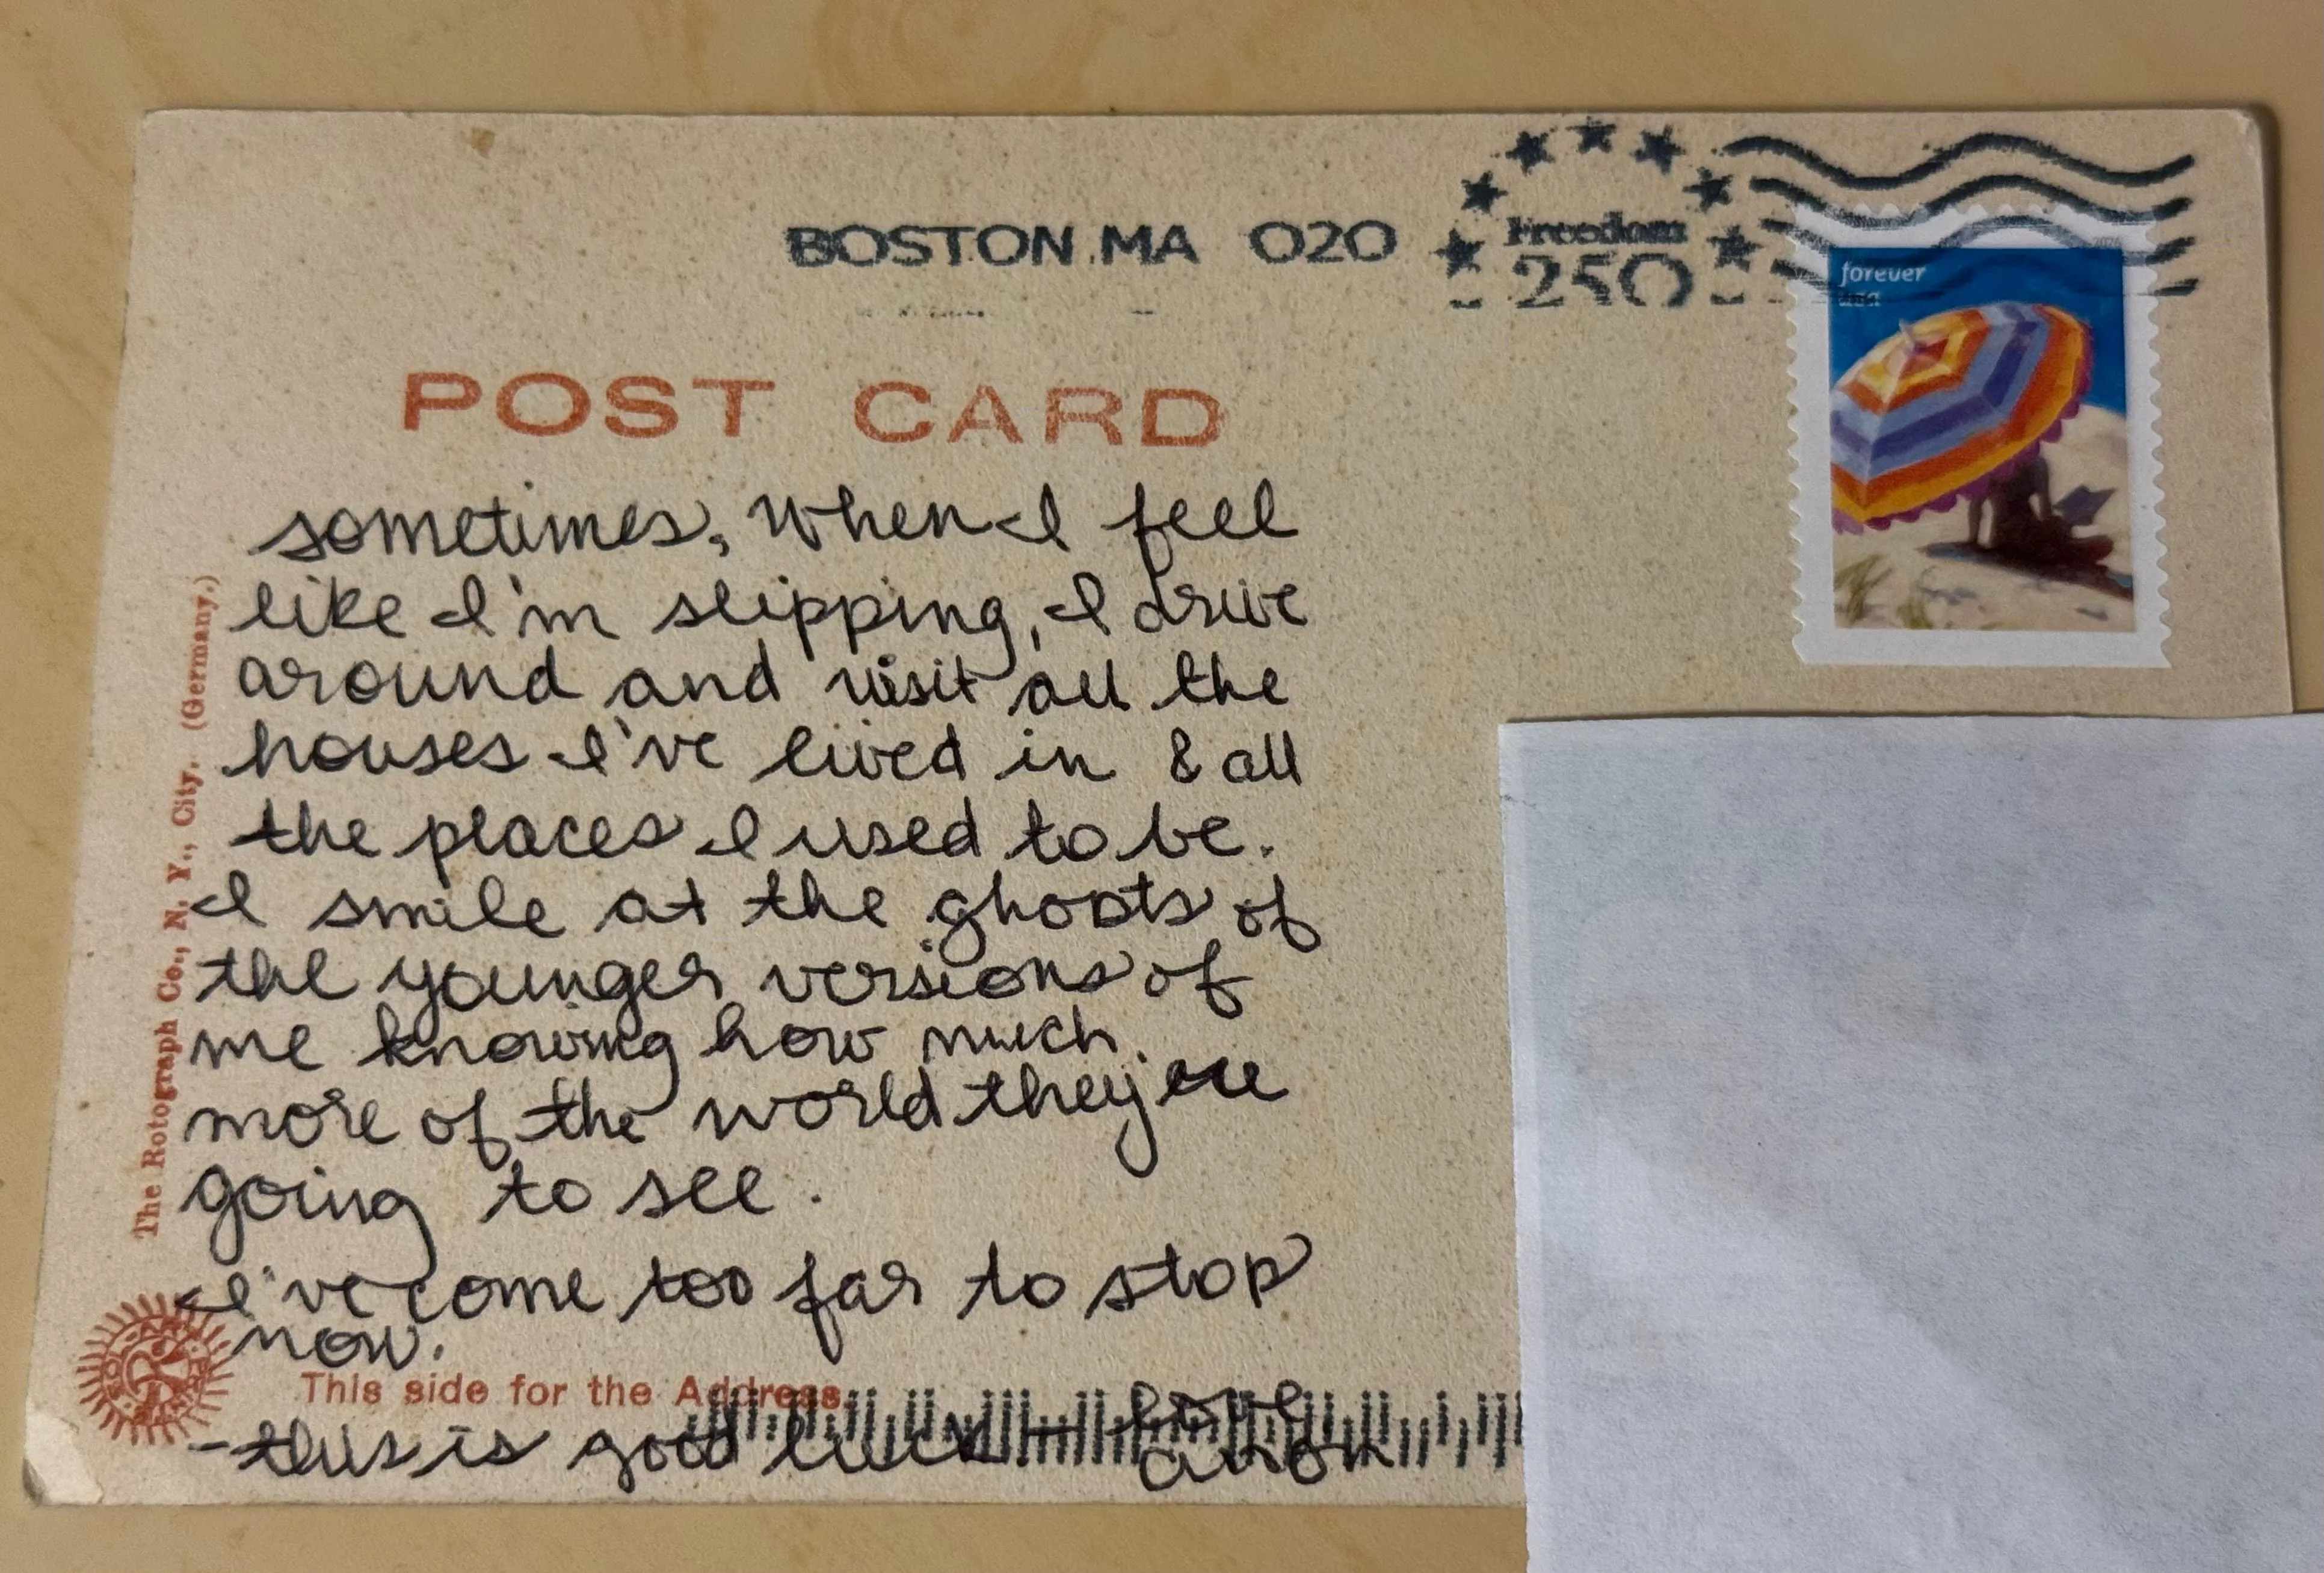 BOSTON MA 020
Freedom
250
forever
usa
2026
POST CARD
sometimes, when I feel
like I'm slipping, I drive
around and visit all the
houses I've lived in & all
the places I used to be.
I smile at the ghosts of
the younger versions of
me knowing how much
more of the world they're
going to see.
I've come too far to stop
now.
The Rotograph Co., N. Y., City. (Germany.)
This side for the Address.
- this is good luck - love
anon